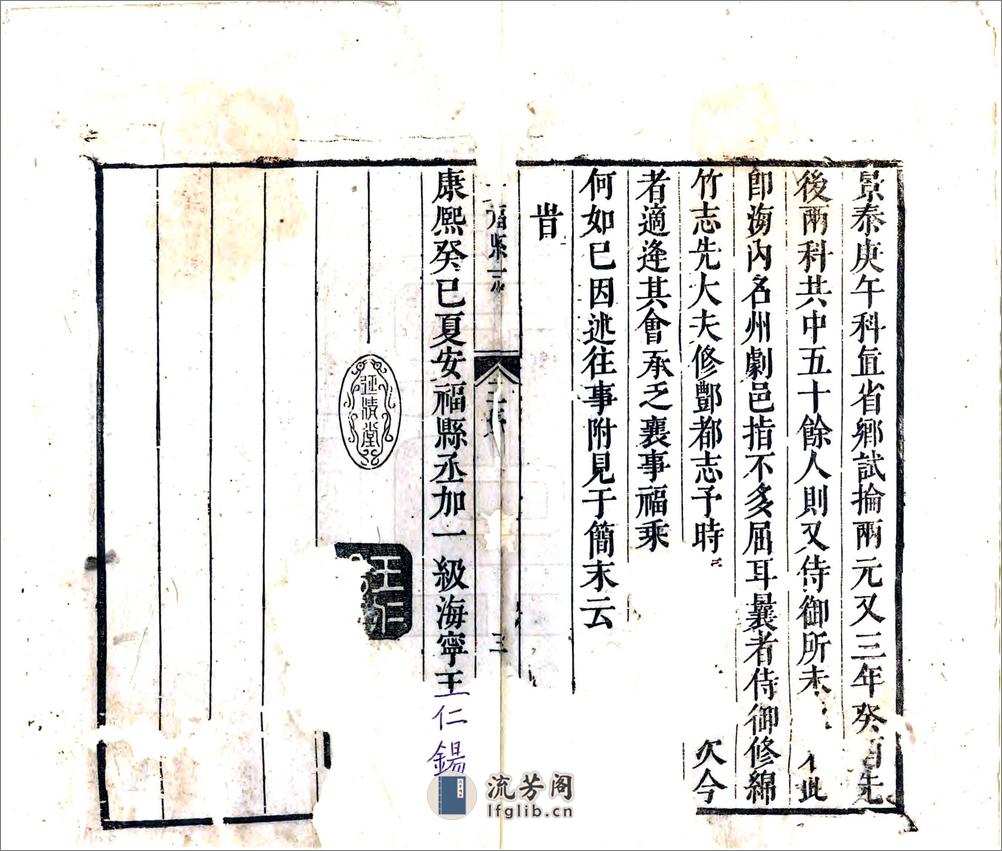 景泰庚午科直省鄉試掄兩元又三年癸酉先
後兩科共中五十餘人則又侍御所未此
卽海內名州劇邑指不多屈耳曩者侍御修綿
竹志先大夫修酆都志予時次今
者適逢其會承乏襄事福乘
何如已因述往事附見于簡末云
旹
福縣志
三
康熙癸巳夏安福縣丞加一級海寧王仁錫
王仁
流芳阁
lfglib.cn